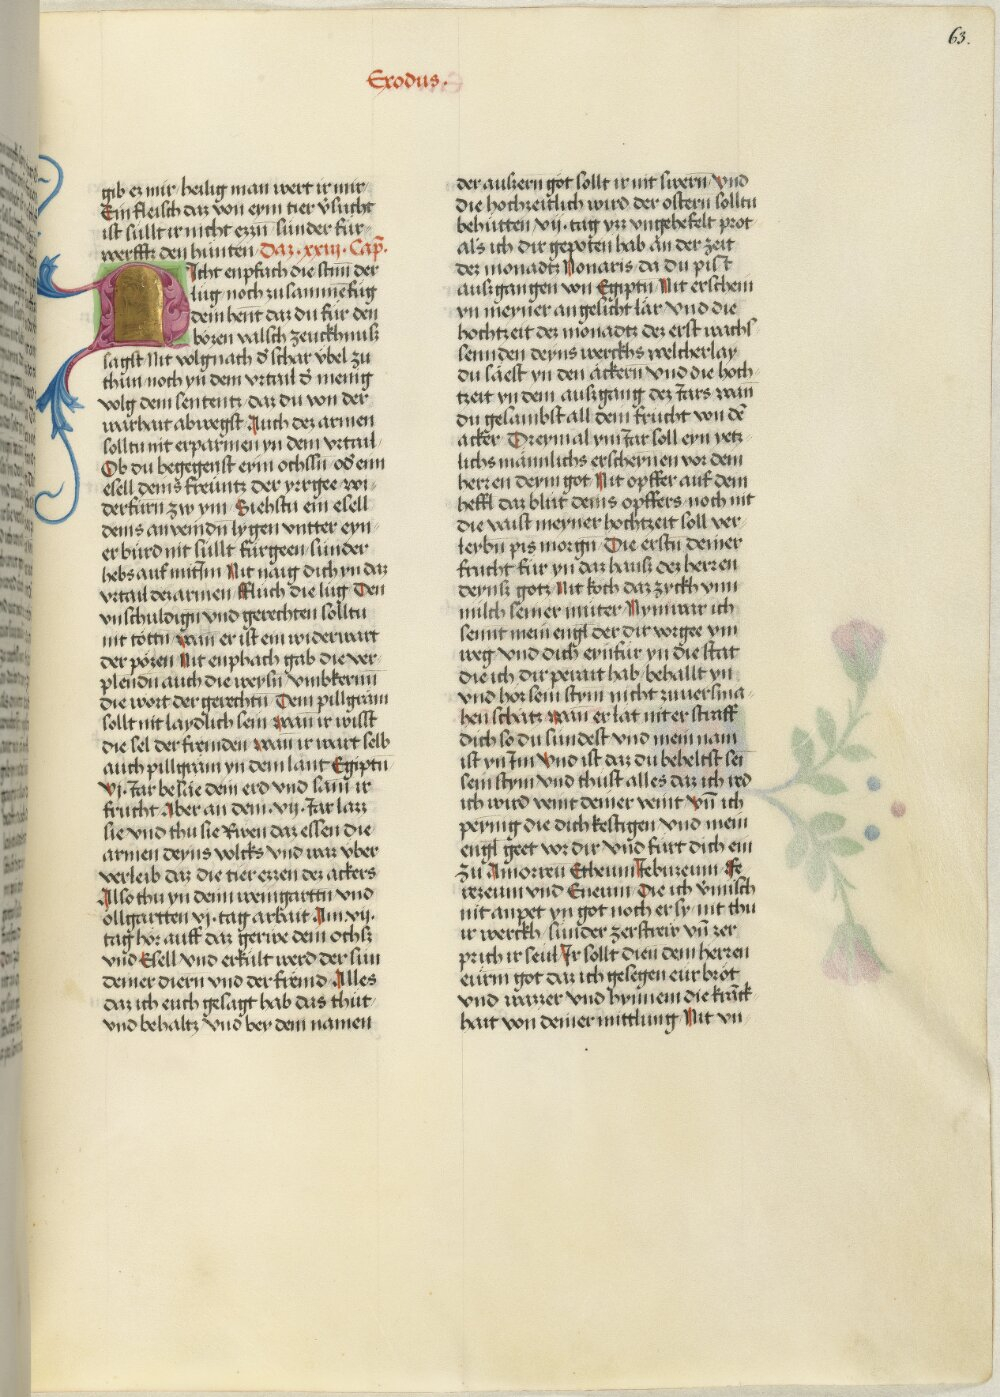 63.
Exodus.
gib es mir heilig man wert ir mir
Ein fleisch daz von eym tier v̈sucht
ist sullt ir nicht ezzn sunder für
werfft den hunten Daz .xxiii. Cap̃.
Nicht enpfach die stim̄ der
lug noch zusammēfüg
dein hent daz du für den
bözen valsch zeuckhnuß
sagst Nit volg nach d̓ schar vbel zu
thun noch yn dem vrtail d̓ menig
volg dem sententz daz du von der
warhait abwegst Auch dez armen
solltu nit erparmen yn dem vrtail
Ob du begegenst eym ochssn od̓ eim
esell deins freuntz der yrrgee wi-
derfürn zw ym Siehstu ein esell
deins anveindn lygen vntter eyn-
er bürd nit sullt fürgeen sunder
hebs auf mit Im Nit naig dich yn daz
vrtail dez armen Fleuch die lüg Den
vnschuldign vnd gerechten solltu
nit töttn wan er ist ein widerwart
der pözen Nit enphach gab die ver-
plendn auch die weysn vmbkernn
die wort der gerechtn Dem pillgram
sollt nit laydlich sein wan ir wisst
die sel der fremden wan ir wart selb
auch pillgram yn dem lant Egiptn
Vi. Jar besäe dein erd vnd sam̄ ir
frucht Aber an dem .vij. Jar lazz
sie vnd thu sie Rwen daz essen die
armen deyns volcks vnd waz vber
verleib daz die tier ezzen dez ackers
Also thu yn deim weingarttn vnd
öllgartten vj. tag arbait Am vij.
tag hör auff daz gerwe dein ochß
vnd Esell vnd erkült werd der sun
deiner diern vnd der fremd Alles
daz ich euch gesagt hab das thüt
vnd behaltz vnd bey dem namen
der außern got sollt ir nit swern Vnd
die hochzeitlich wird der ostern solltu
behütten vij. tag yzz vngehefelt prot
als ich dir gepoten hab an der zeit
dez monadtz Nouaris da du pist
ausgangen von Egiptn Nit erschein
yn meyner angesicht lär vnd die
hochzeit dez monadtz dez erst wachs-
sennden deyns werckhs welcherlay
du säest yn den äckern vnd die hoch-
tzeit yn dem ausgang dez Jars wan
du gesambst all dein frucht von dē
acker Dreymal ym Jar soll eyn yetz-
lichs männlichs erscheynen vor dem
herzen deym got Nit opffer auf dem
heffl daz blut deins opffers noch nit
die vaist meyner hochzeit soll ver-
leybn pis morgn Die erstn deiner
frucht für yn daz hauß dez herzen
deynß gotz Nit koch daz zyckh ynn
milch seiner muter Nym war ich
sennt mein engl der dir vorgee ym
weg vnd dich eynfür yn die stat
die ich dir perait hab behallt yn
vnd hör sein stym nicht zuuersma-
hen schätz wan er lat nit er straff
dich so du sundest vnd mein nam
ist yn Im Vnd ist daz du beheltst sei
sein stym vnd thust alles daz ich red
ich wird veint deiner veint Vn̄ ich
peynig die dich kestigen vnd mein
engl geet vor dir vnd fürt dich ein
zu Amorreū Etheum Jebuzeum Fe-
rezeum vnd Eneum Die ich v̈nisch
nit anpet yn got noch er sy nit thu
ir werckh sunder zerstreir vn̄ zer
prich ir seul Ir sollt dien dem herzen
eürm got daz ich gesegen eur bröt
vnd wazzer vnd hynnem die kranck-
hait von deiner mittlung Nit vn-